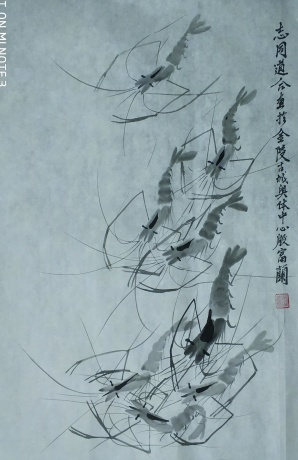 志同道合画于金陵古城奥体中心殷富兰
T ON MI NOTE 3